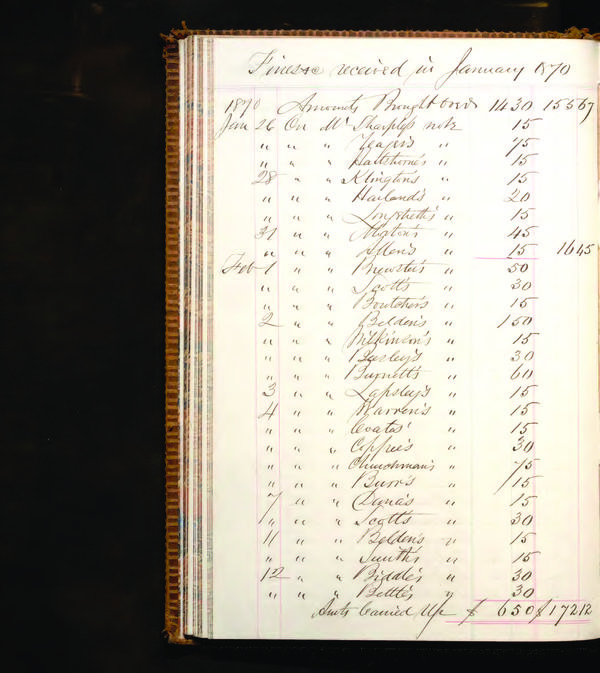 Fines &c received in January 1870
1870 Amounts Brought over 14 30 155 67
Jan 26 On Mr Sharples note 15
" " " Yeager's " 75
" " " Halthorne's " 15
28 " " Klington's " 15
" " " Harland's " 20
" " " Longstreth's " 15
31 " " Morton's " 45
" " " Allen's " 15 16 45
Feb 1 " " Brewster's " 50
" " " Scott's " 30
" " " Boutcher's " 15
2 " " Belden's " 1 50
" " " Wilkinson's " 15
" " " Basley's " 30
" " " Burnett's " 60
3 " " Lapsley's " 15
4 " " Warren's " 15
" " " Coates' " 15
" " " Coppee's " 30
" " " Churchman's " 75
" " " Burr's " 15
7 " " Dana's " 15
" " " Scott's " 30
11 " " Belden's " 15
" " " Smith's " 15
12 " " Biddle's " 30
" " " Bettle's " 30
Amts Carried Up $ 6 50 $ 172 12